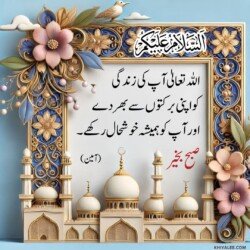 السلام علیکم
اللہ تعالیٰ آپ کی زندگی
کو اپنی برکتوں سے بھر دے
اور آپ کو ہمیشہ خوشحال رکھے۔
صبح بخیر
(آمین)
KHIYALBE.COM